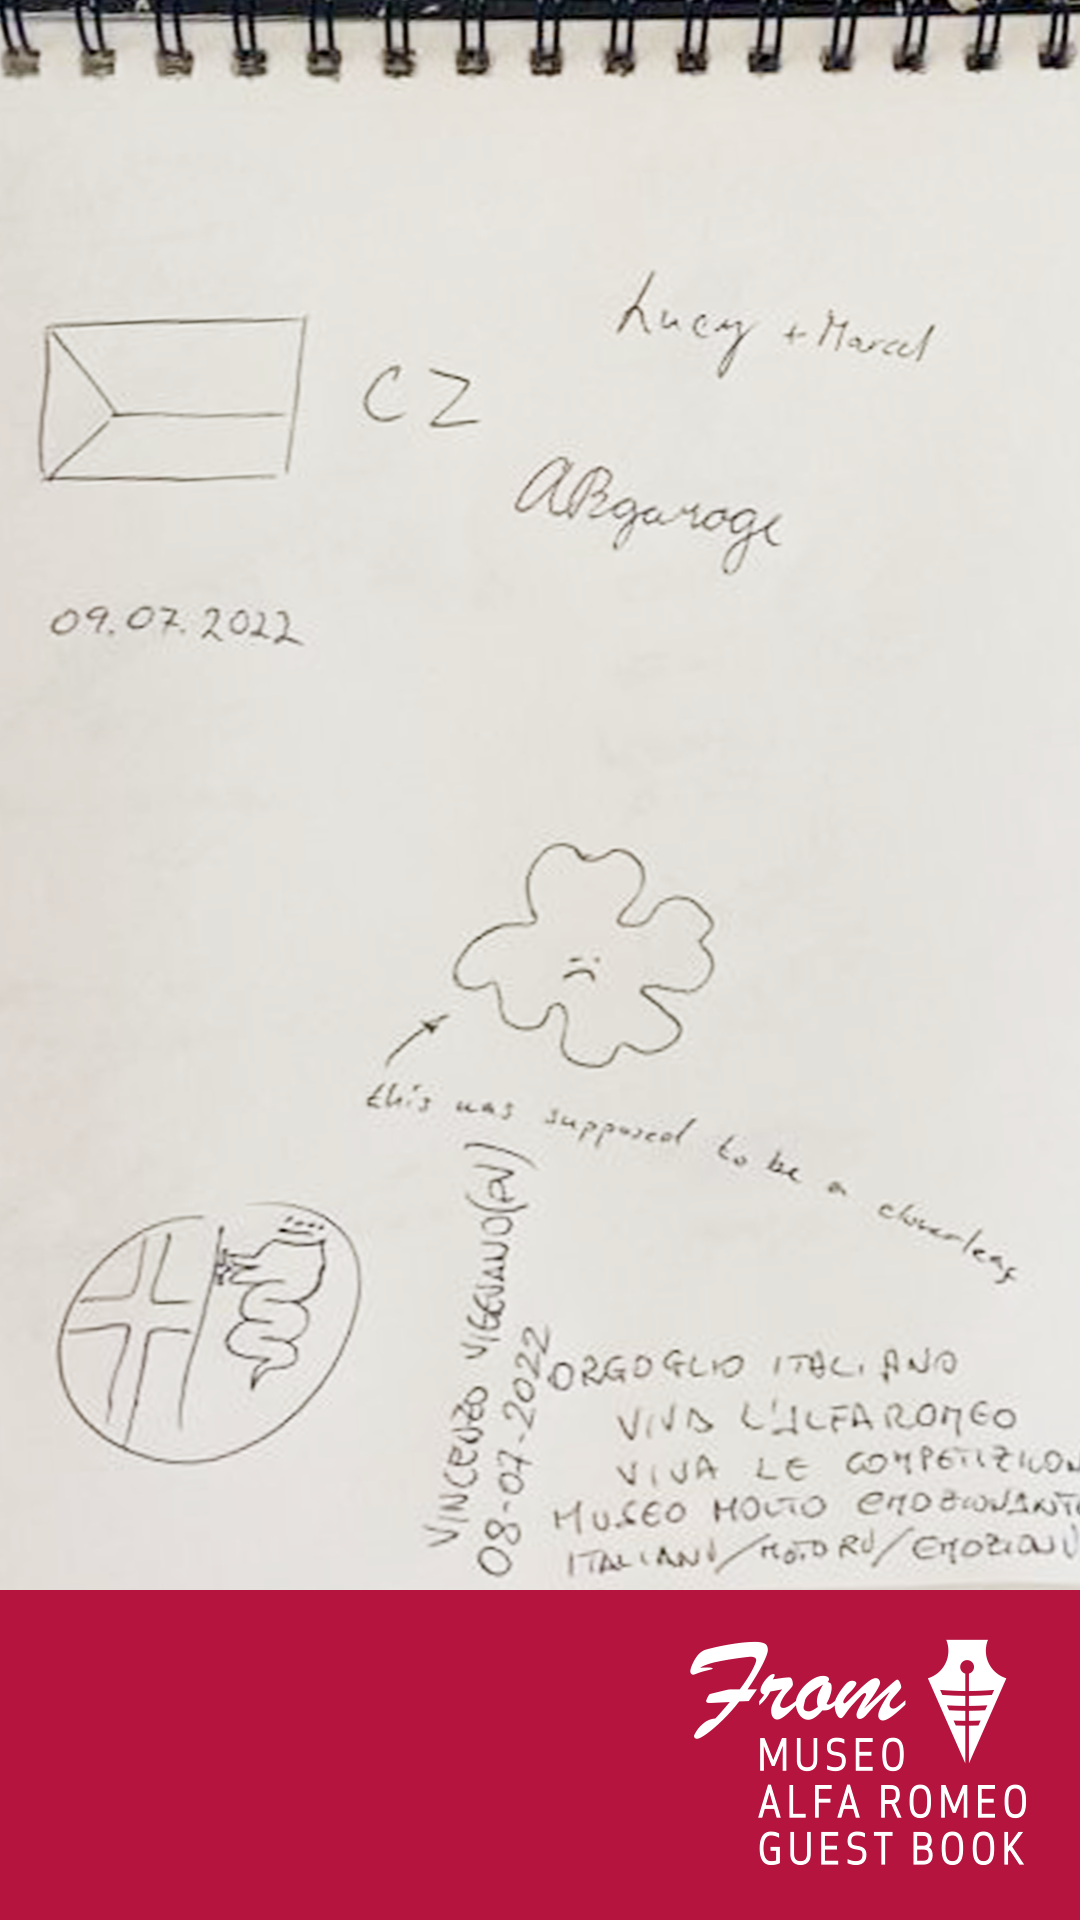 Lucy + Marcel
CZ
ARgarage
09.07.2022
this was supposed to be a cloverleaf
VINCENZO VIGEVANO (PV)
08-07-2022
ORGOGLIO ITALIANO
VIVA L'ALFAROMEO
VIVA LE COMPETIZION
MUSEO MOLTO EMOZIONANT
ITALIANI/MOTORI/EMOZIONI
From
MUSEO
ALFA ROMEO
GUEST BOOK